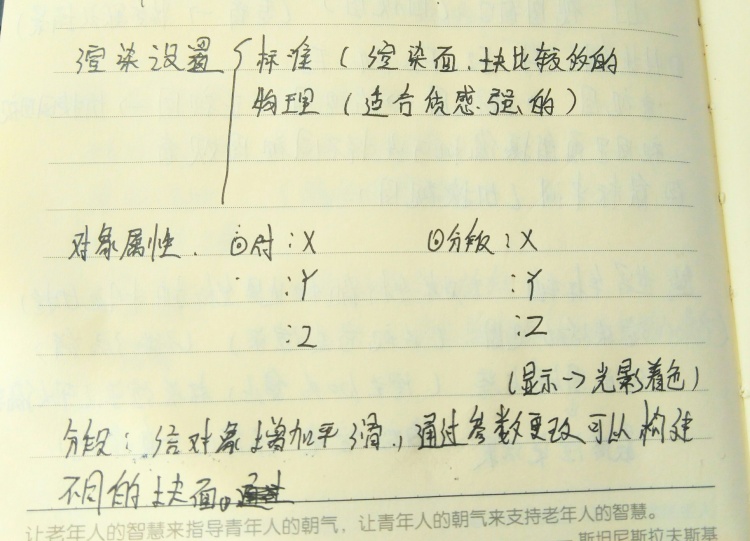 渲染设置 { 标准（渲染面.块比较多的
物理（适合质感.强的）
对象属性. ⊙对:X ⊙分段:X
:Y :Y
:Z :Z
（显示->光影着色）
分段：给对象增加平滑,通过参数更改可以构建
不同的块面。
让老年人的智慧来指导青年人的朝气，让青年人的朝气来支持老年人的智慧。
斯坦尼斯拉夫斯基